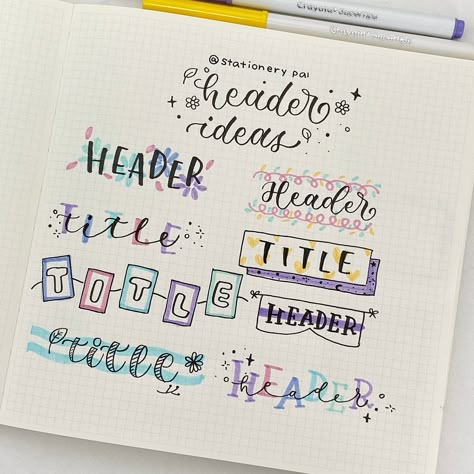 @stationery pal
header
ideas
HEADER
Header
TITLE
title
TITLE
TITLE
HEADER
title
HEADER
header